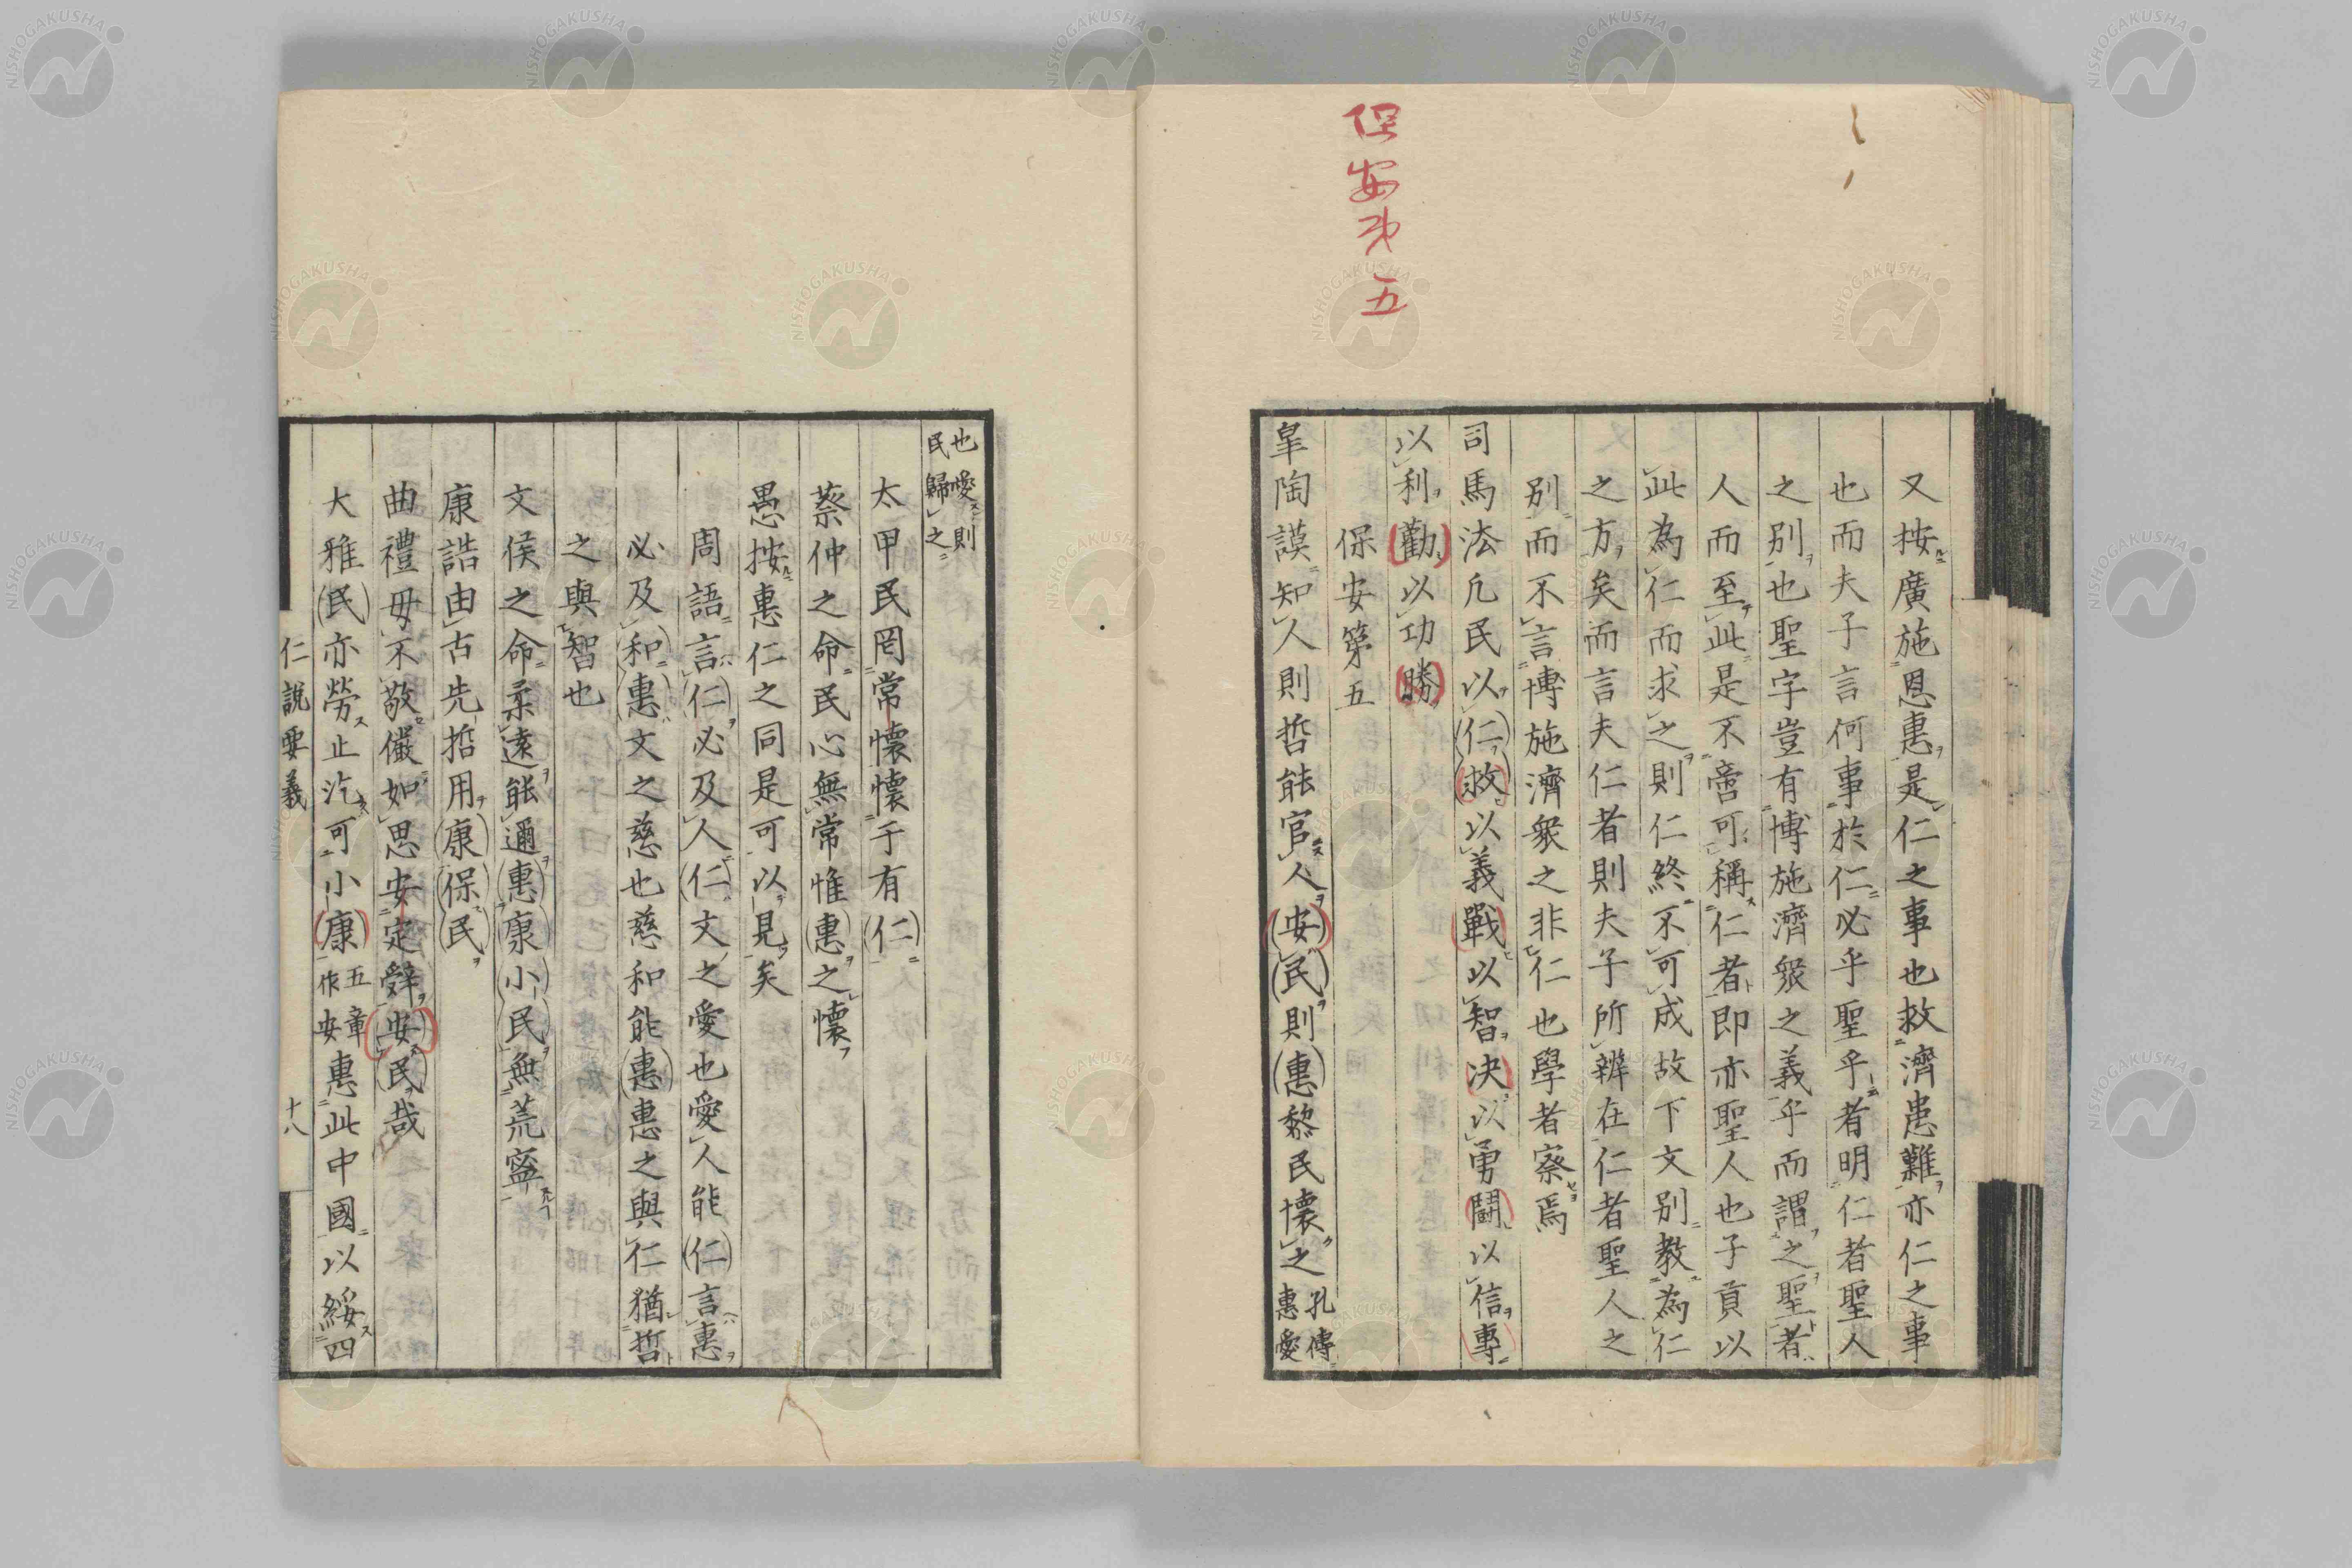 保安第五
又按廣施恩惠是仁之事也救濟患難亦仁之事
也而夫子言何事於仁必乎聖乎者明仁者聖人
之別也聖字豈有博施濟衆之義乎而謂之聖者
人而至此是不啻可稱仁者即亦聖人也子貢以
此為仁而求之則仁終不可成故下文別教為仁
之方矣而言夫仁者則夫子所辨在仁者聖人之
別而不言博施濟衆之非仁也學者察焉
司馬法凡民以仁救以義戰以智決以勇鬪以信專
以利勸以功勝
保安第五
皐陶謨知人則哲能官人安民則惠黎民懷之孔傳惠愛
也愛則民歸之
太甲民罔常懷懷于有仁
蔡仲之命民心無常惟惠之懷
愚按惠仁之同是可以見矣
周語言仁必及人仁文之愛也愛人能仁言惠
必及和惠文之慈也慈和能惠惠之與仁猶哲
之與智也
文侯之命柔遠能邇惠康小民無荒寧
康誥由古先哲用康保民
曲禮毋不敬儼如思安定辭安民哉
大雅民亦勞止汔可小康五章作安惠此中國以綏四
仁說要義
十八
NISHOGAKUSHA